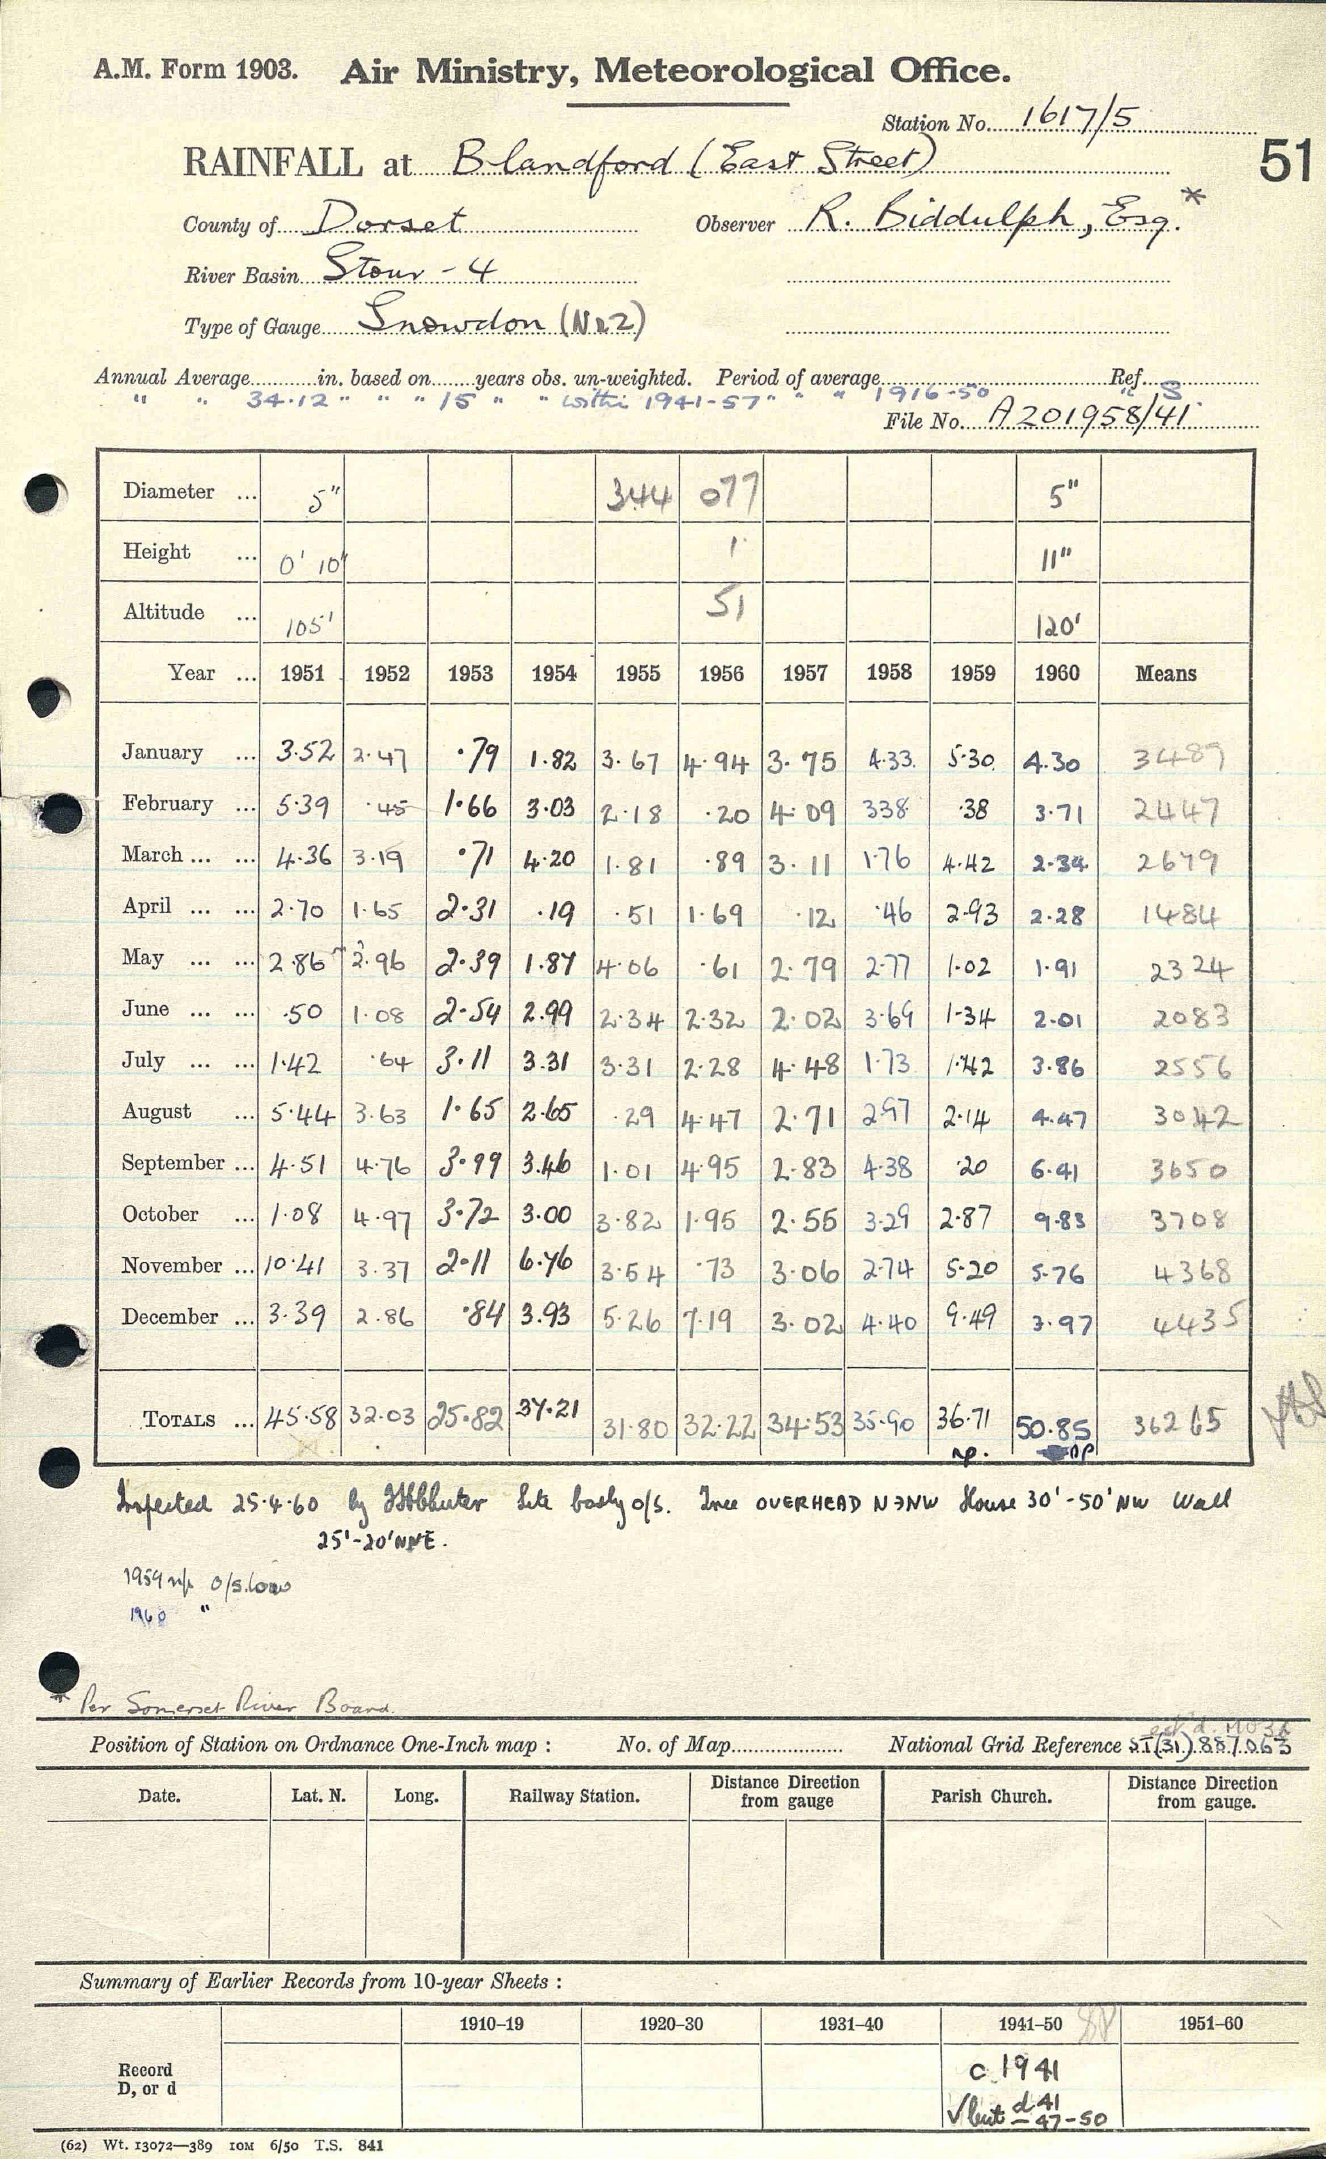 A.M. Form 1903. Air Ministry, Meteorological Office.
Station No. 1617/5
RAINFALL at Blandford (East Street)
51
County of Dorset Observer R. Biddulph, Esq. *
River Basin Stour - 4
Type of Gauge Snowdon (No2)
Annual Average in. based on years obs. un-weighted. Period of average Ref.
" " 34.12 " " " 15 " " within 1941-57 " " " 1916-50 " S
File No. A201958/41
Diameter ... 5" 344 077 5"
Height ... 0' 10" 1 11"
Altitude ... 105' 51 120'
Year ... 1951 1952 1953 1954 1955 1956 1957 1958 1959 1960 Means
January ... 3.52 2.47 .79 1.82 3.67 4.94 3.75 4.33 5.30 4.30 3489
February ... 5.39 .45 1.66 3.03 2.18 .20 4.09 338 .38 3.71 2447
March ... ... 4.36 3.19 .71 4.20 1.81 .89 3.11 1.76 4.42 2.34 2679
April ... ... 2.70 1.65 2.31 .19 .51 1.69 .12 .46 2.93 2.28 1484
May ... ... 2.86 2.96 2.39 1.87 4.06 .61 2.79 2.77 1.02 1.91 2324
June ... ... .50 1.08 2.54 2.99 2.34 2.32 2.02 3.69 1.34 2.01 2083
July ... ... 1.42 .64 3.11 3.31 3.31 2.28 4.48 1.73 1.42 3.86 2556
August ... 5.44 3.63 1.65 2.65 .29 4.47 2.71 2.97 2.14 4.47 3042
September ... 4.51 4.76 3.99 3.46 1.01 4.95 2.83 4.38 .20 6.41 3650
October ... 1.08 4.97 3.72 3.00 3.82 1.95 2.55 3.29 2.87 9.83 3708
November ... 10.41 3.37 2.11 6.76 3.54 .73 3.06 2.74 5.20 5.76 4368
December ... 3.39 2.86 .84 3.93 5.26 7.19 3.02 4.40 9.49 3.97 4435
TOTALS ... 45.58 32.03 25.82 37.21 31.80 32.22 34.53 35.90 36.71 50.85 36265
np. np
Inspected 25.4.60 by Site badly o/s. Tree OVERHEAD N→NW House 30'-50' NW Wall
25'-20' NNE.
1959 np o/s. low
1960 "
* Per Somerset River Board.
est'd. MO3b
Position of Station on Ordnance One-Inch map : No. of Map National Grid Reference ST(31) 887063
Date. Lat. N. Long. Railway Station. Distance Direction from gauge Parish Church. Distance Direction from gauge.
Summary of Earlier Records from 10-year Sheets :
1910–19 1920–30 1931–40 1941–50 1951–60
Record c 1941
D, or d √ but d 41
– 47-50
(62) Wt. 13072—389 10M 6/50 T.S. 841